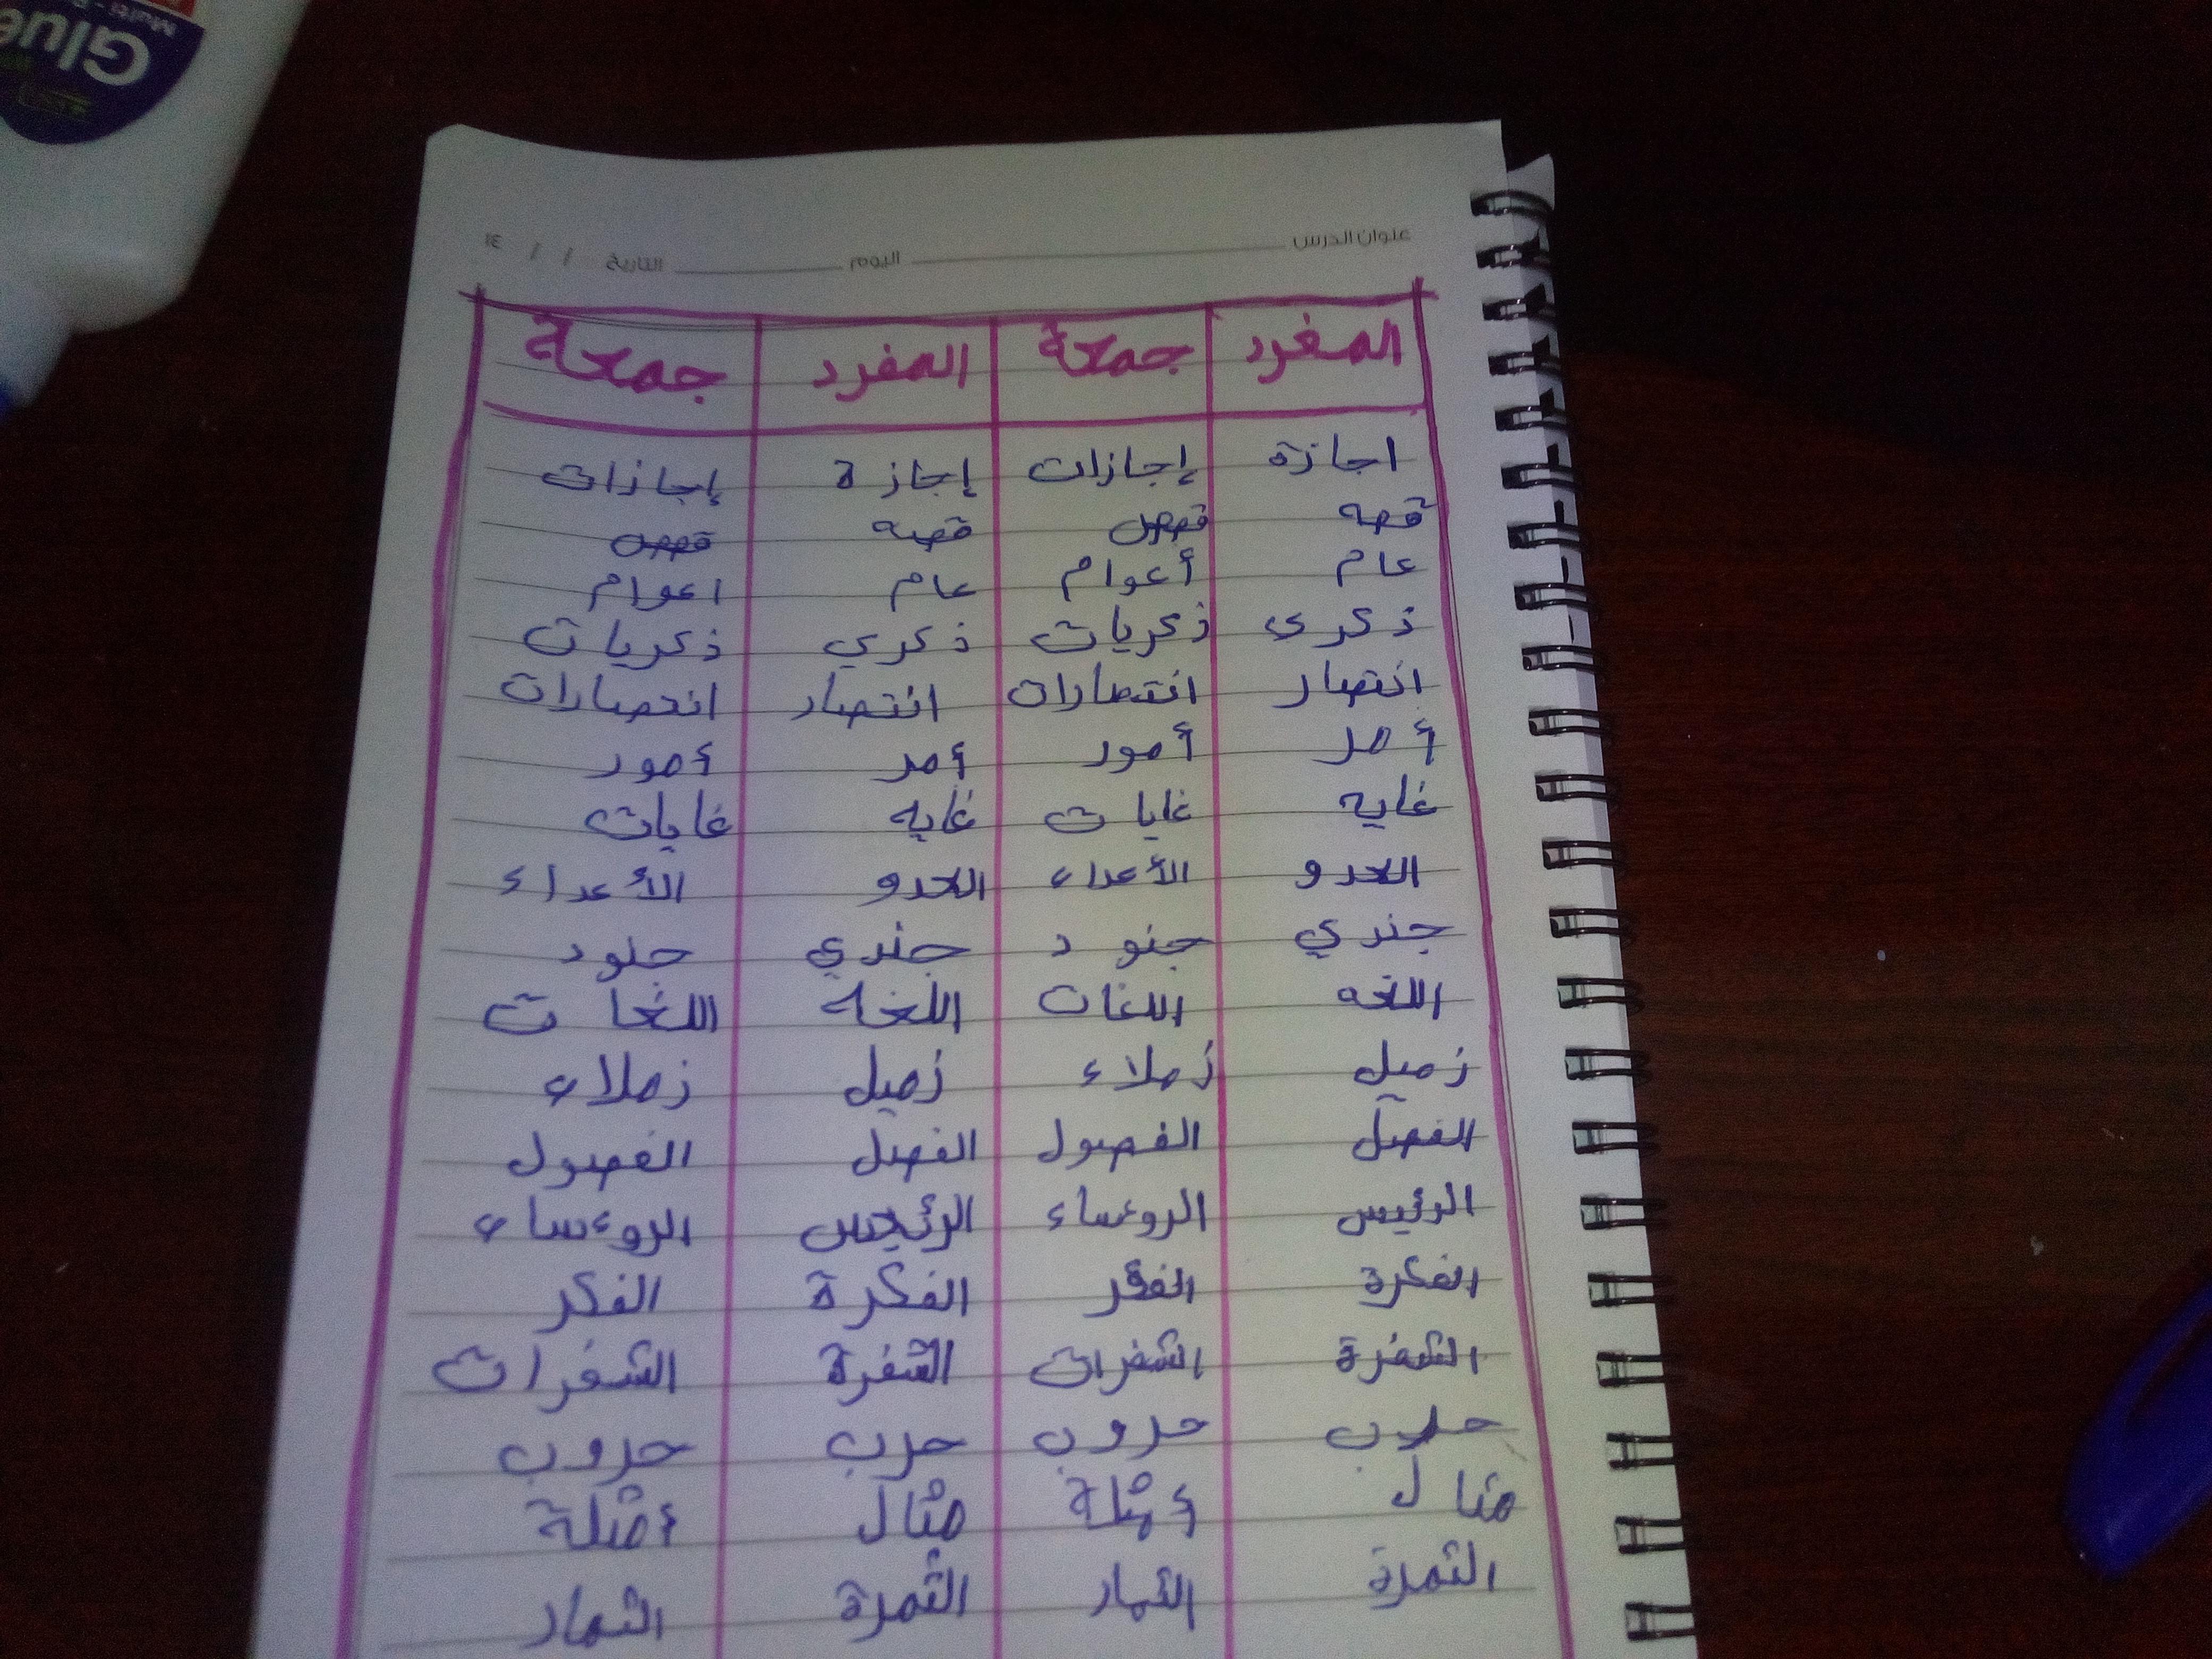 Glue
Multi-
عنوان الدرس اليوم التاريخ / / ١٤
المفرد جمعة المفرد جمعة
اجازة إجازات إجازة إجازات
قصه قصص قصه قصص
عام أعوام عام اعوام
ذكرى ذكريات ذكري ذكريات
انتصار انتصارات انتصار انتصارات
أمر أمور أمر أمور
غايه غايات غايه غايات
العدو الأعداء العدو الأعداء
جندي جنود جندي جنود
اللغه اللغات اللغة اللغات
زميل زملاء زميل زملاء
الفصل الفصول الفصل الفصول
الرئيس الروءساء الرئيس الروءساء
الفكرة الفكر الفكرة الفكر
الشفرة الشفرات الشفرة الشفرات
حرب حروب حرب حروب
مثال أمثلة مثال أمثلة
الثمرة الثمار الثمرة الثمار